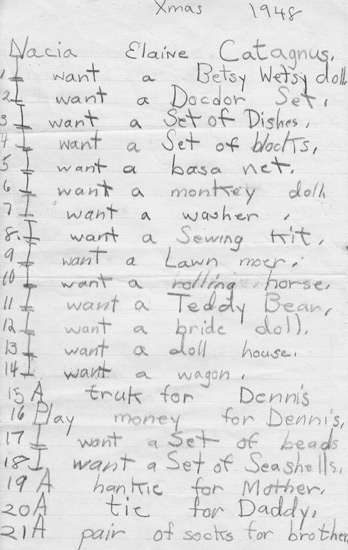 Xmas 1948
Nacia Elaine Catagnus.
1 I want a Betsy Wetsy doll
2 I want a Docdor Set.
3 I want a Set of Dishes.
4 I want a Set of blocks.
5 I want a basa net.
6 I want a monkey doll.
7 I want a washer.
8. I want a Sewing Kit.
9 I want a Lawn moer.
10 I want a rolling horse.
11 I want a Teddy Bear.
12 I want a bride doll.
13 I want a doll house.
14 I want a wagon.
15 A truk for Dennis
16 Play money for Dennis.
17 I want a Set of beads
18 I want a Set of Seashells.
19 A hankie for Mother.
20 A tie for Daddy.
21 A pair of socks for brother